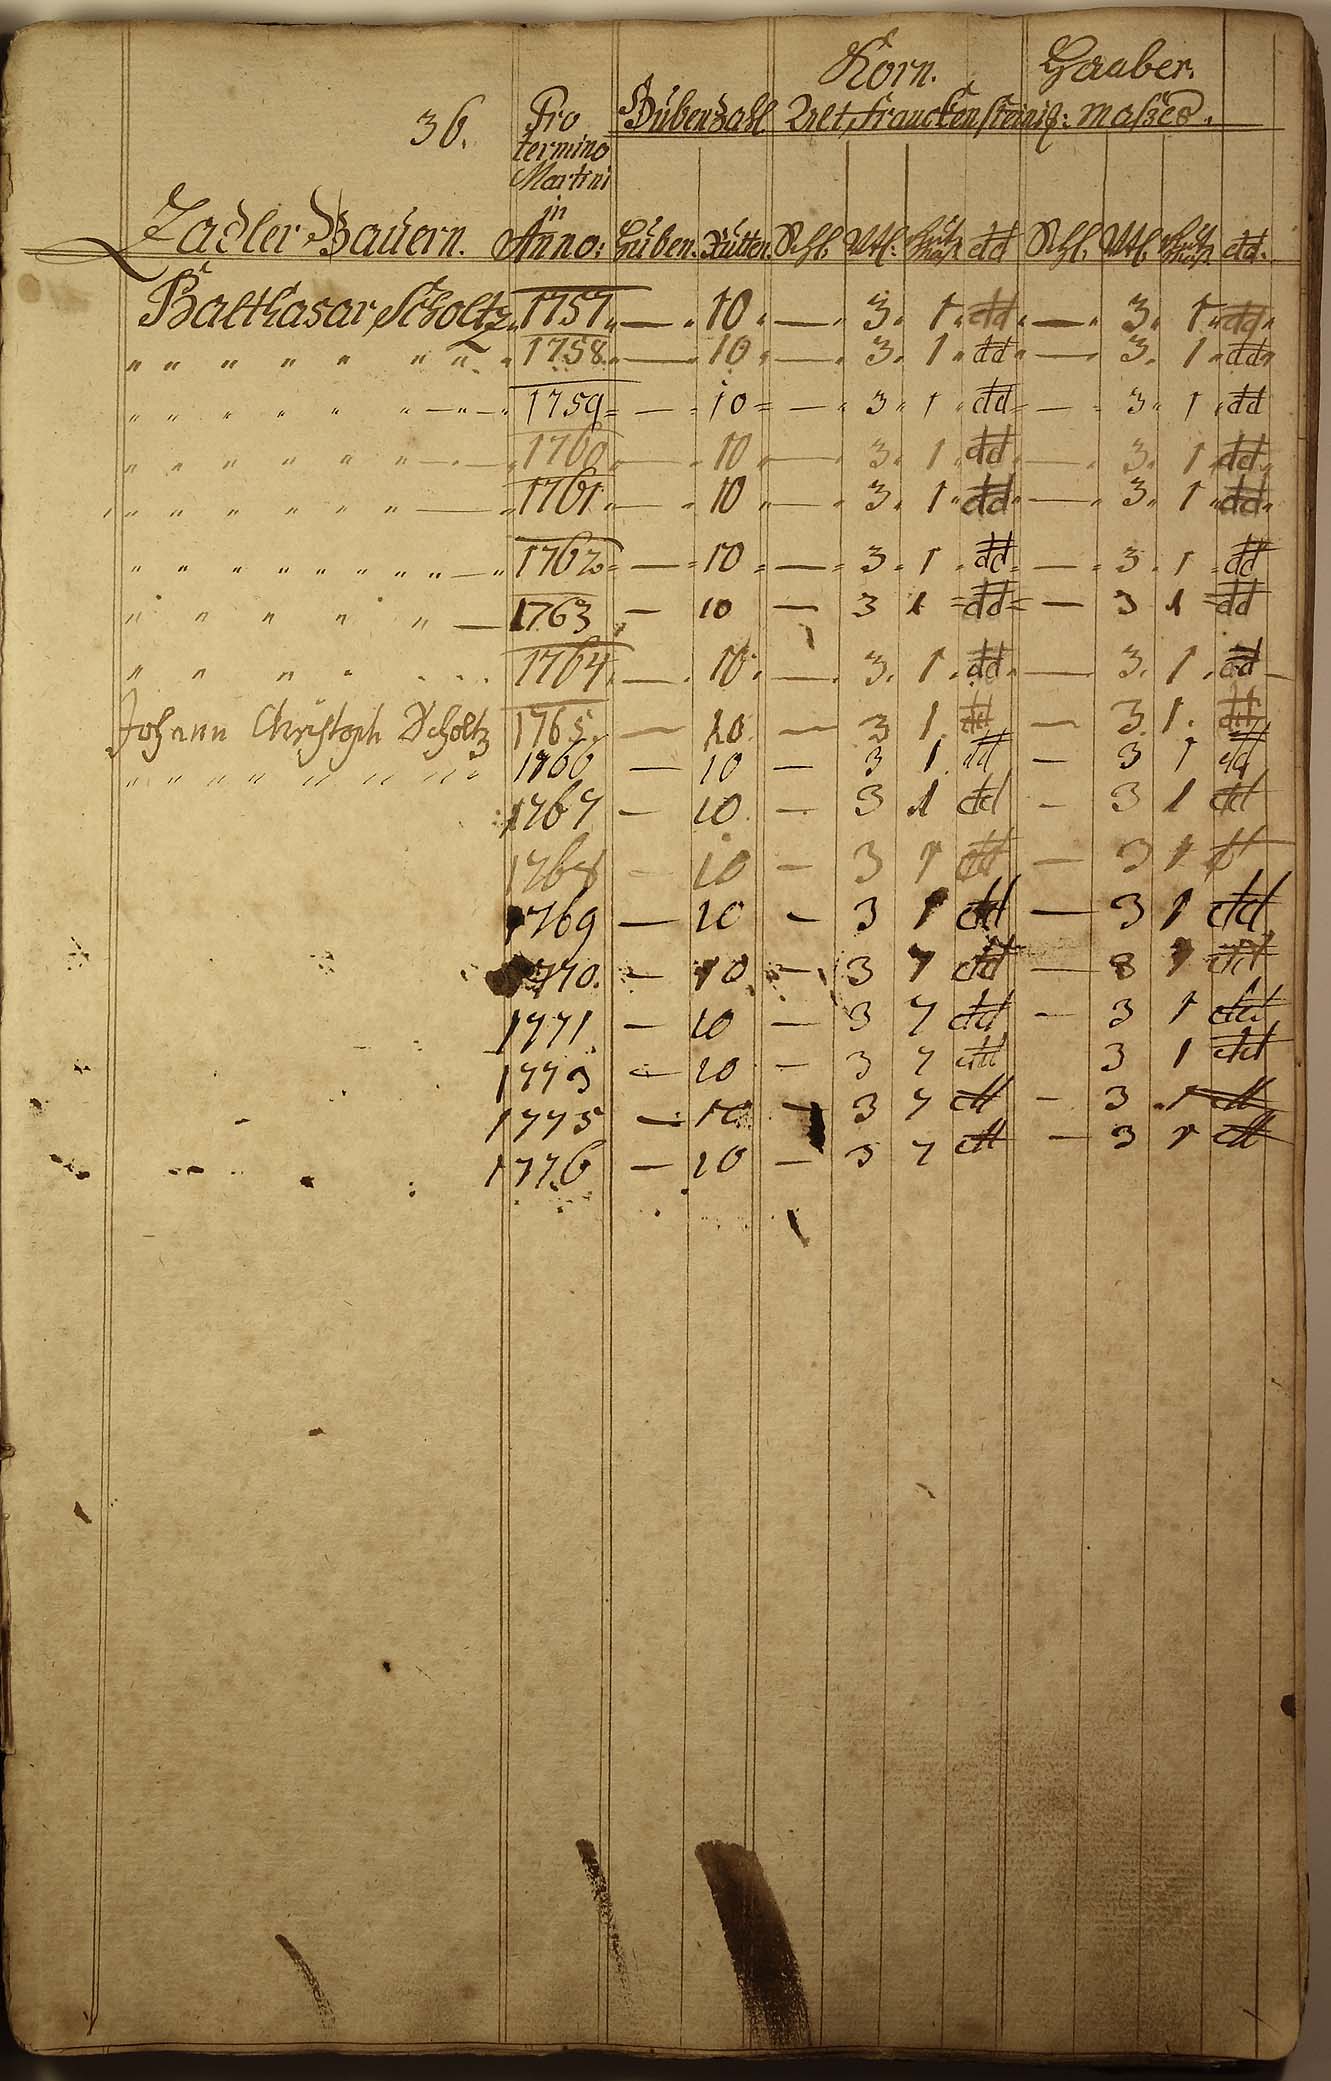 Korn. Haaber.
36. Pro Hubenzahl Alt, franckensteinig: Maßes.
termino
Martini
in
Zadler Bauern. Anno: Huben. Rutten. Schl. Vtl. dd Schl. Vtl. dd.
Balthasar Scholtz 1757 — 10 — 3. 1. dd — 3. 1. dd
" " " " " " " 1758. — 10 — 3. 1 dd — 3. 1 dd
" " " " " " — " — 1759 — 10 — 3 1 dd — 3 1 dd
" " " " " " " — . — 1760 — 10 — 3. 1 dd — 3. 1 dd
" " " " " " " — 1761 — 10 — 3. 1 dd — 3. 1 dd
" " " " " " " " " — 1762 — 10 — 3. 1. dd — 3. 1 dd
" " " " " — 1763 — 10 — 3 1 dd — 3 1 dd
" " " " . . . 1764 — 10. — 3. 1. dd — 3. 1. dd
Johann Christoph Scholtz 1765. — 10. — 3 1. dd — 3. 1. dd
" " " " " " " " " 1766 — 10 — 3 1 dd — 3 1 dd
1767 — 10 — 3 1 dd — 3 1 dd
1768 — 10 — 3 1 dd — 3 1 dd
1769 — 10 — 3 1 dd — 3 1 dd
1770. — 10 — 3 1 dd — 3 1 dd
1771 — 10 — 3 1 dd — 3 1 dd
1773 — 10 — 3 1 dd 3 1 dd
1775 — 10 — 3 1 dd — 3 1 dd
1776 — 10 — 3 1 dd — 3 1 dd